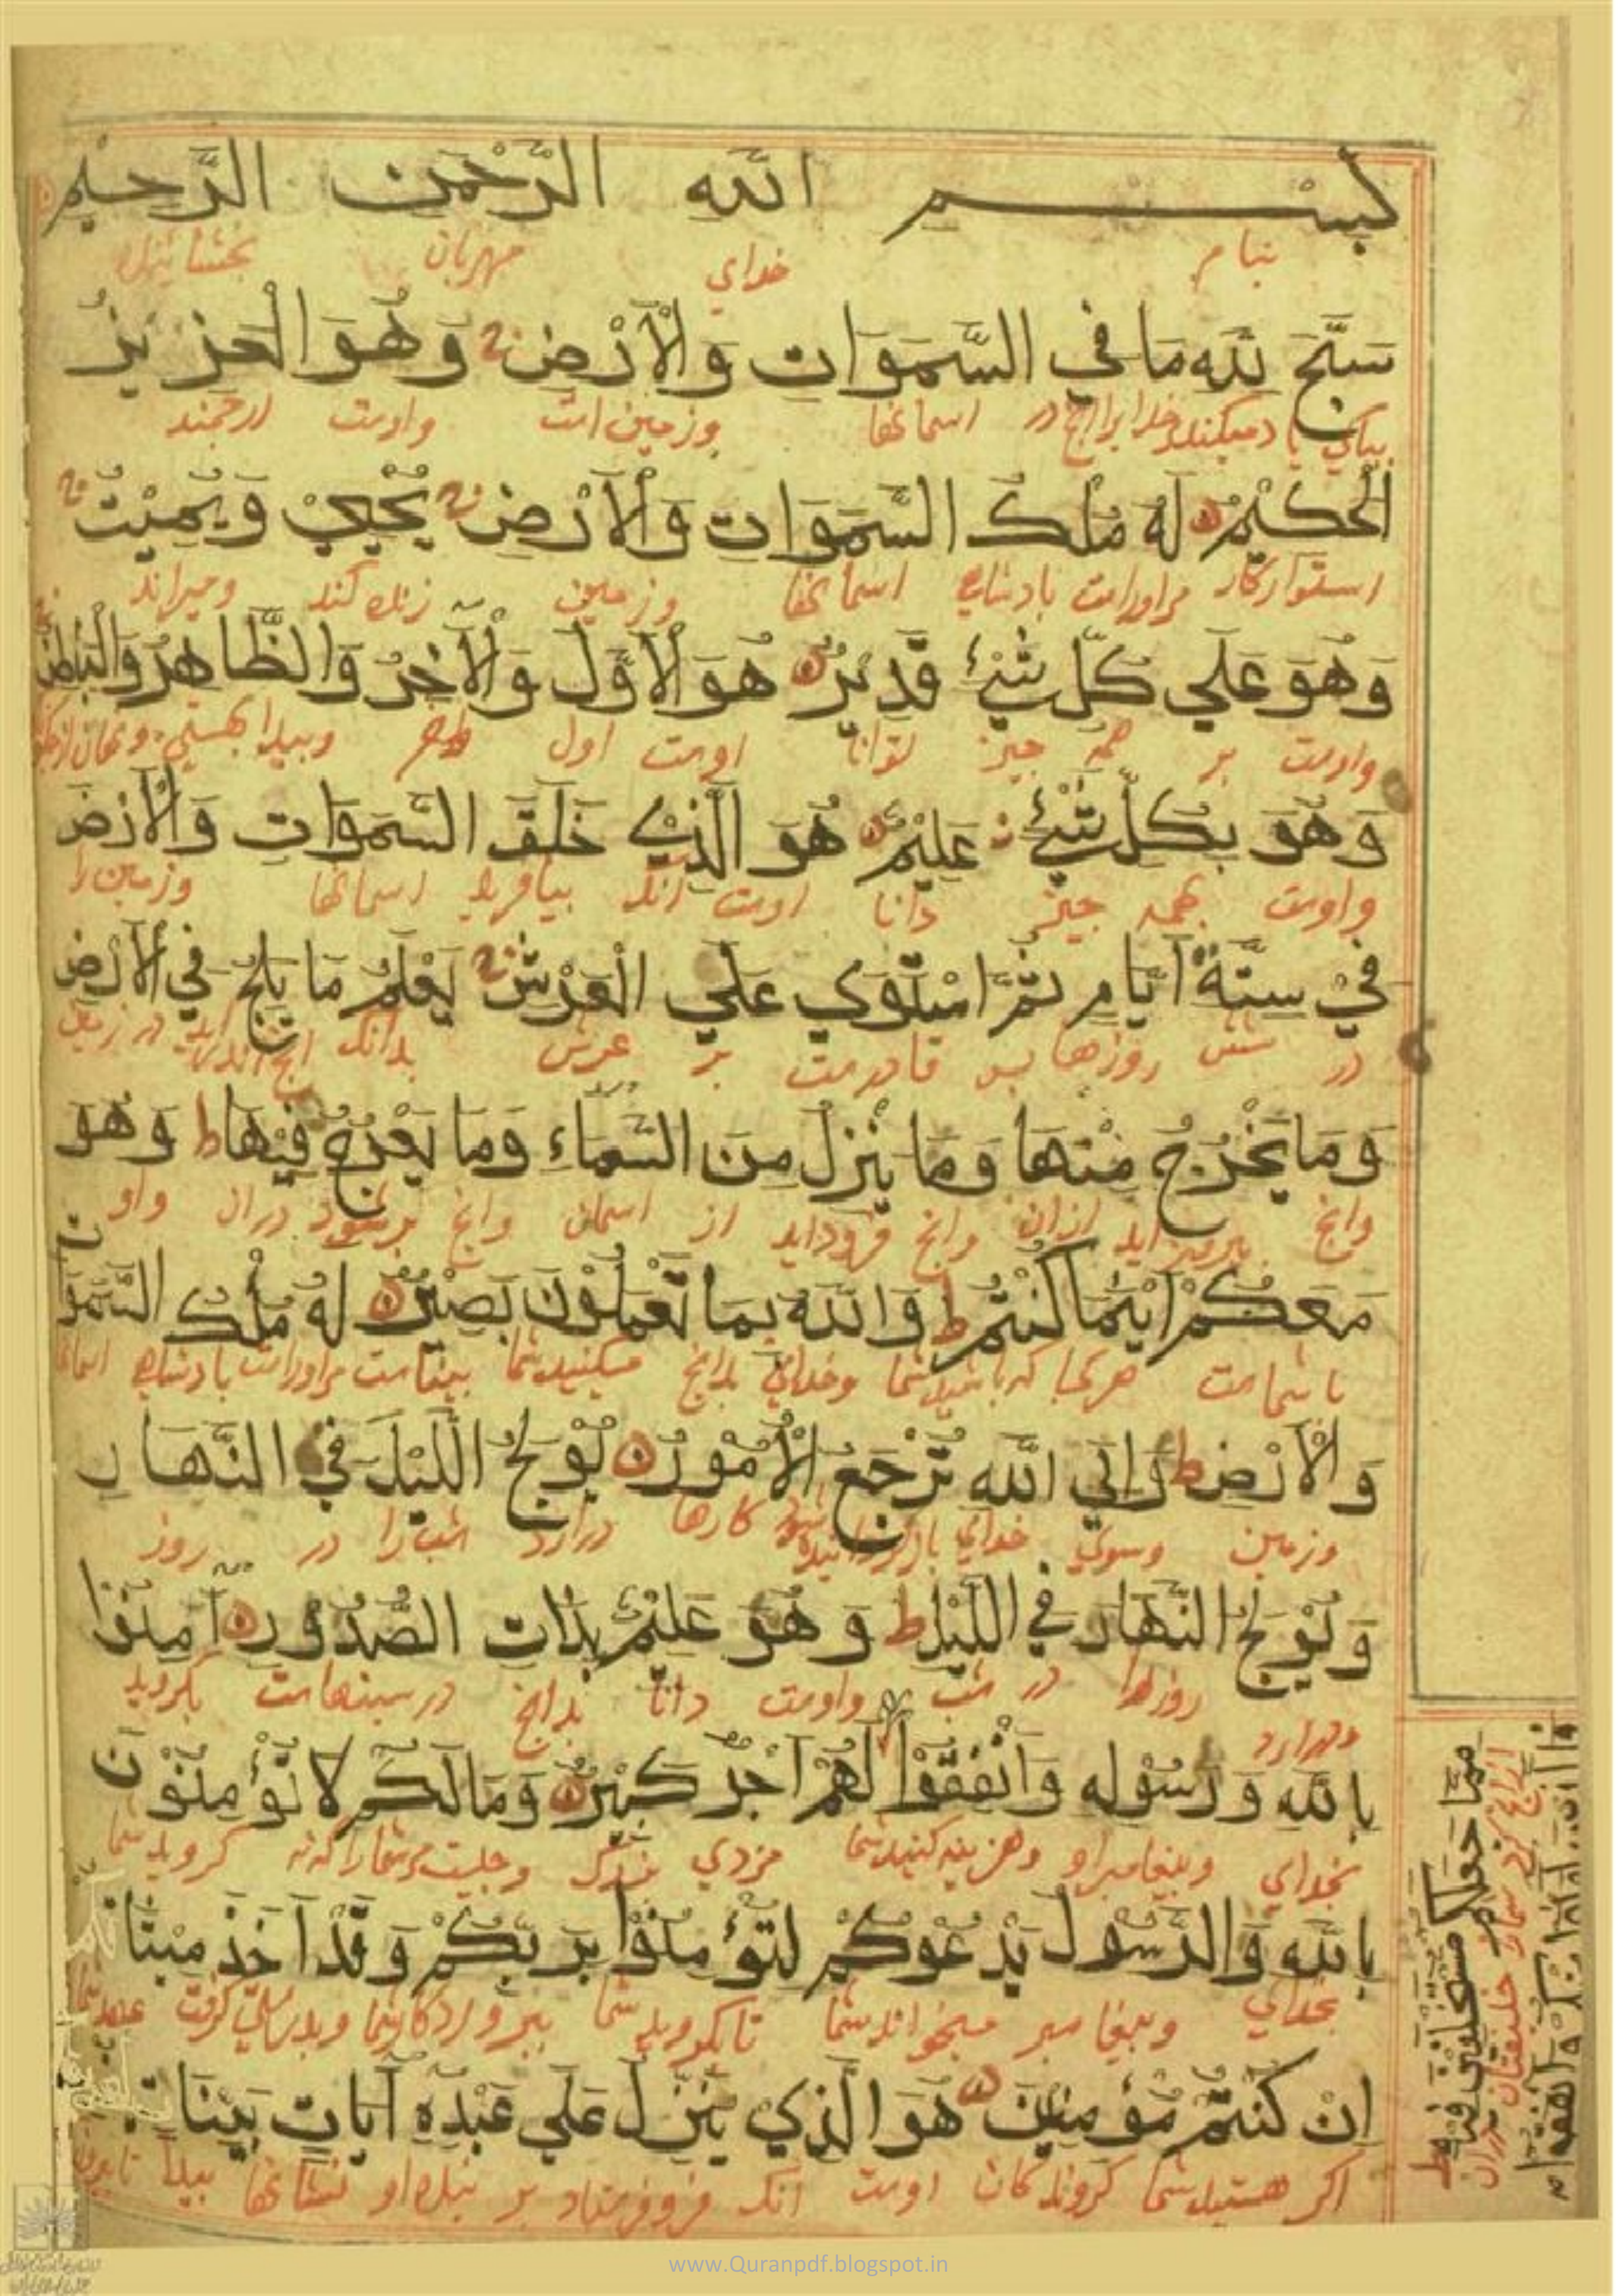 بِسْمِ اللهِ الرَّحْمٰنِ الرَّحِيْمِ
بنام خداي مهربان بخشاينده
سَبَّحَ لِلّٰهِ مَا فِي السَّمَوَاتِ وَالْاَرْضِ وَهُوَ الْعَزِيْزُ
بپاكي ياد ميكند خدايرا انچ در اسمانها وزمين است واوست ارجمند
الْحَكِيْمُ لَهُ مُلْكُ السَّمَوَاتِ وَالْاَرْضِ يُحْيِيْ وَيُمِيْتُ
استواركار مراوراست بادشاهي اسمانها وزمين زنده كند وميراند
وَهُوَ عَلَي كُلِّ شَيْءٍ قَدِيْرٌ هُوَ الْاَوَّلُ وَالْآخِرُ وَالظَّاهِرُ وَالْبَاطِنُ
واوست بر همه چيز توانا اوست اول وپيدا بهستي
وَهُوَ بِكُلِّ شَيْءٍ عَلِيْمٌ هُوَ الَّذِيْ خَلَقَ السَّمَوَاتِ وَالْاَرْضَ
واوست بهمه چيز دانا اوست انك بيافريد اسمانها وزمين را
فِيْ سِتَّةِ اَيَّامٍ ثُمَّ اسْتَوَي عَلَي الْعَرْشِ يَعْلَمُ مَا يَلِجُ فِي الْاَرْضِ
در شش روزها پس قادرست بر عرش بداند انچ اندرايد در زمين
وَمَا يَخْرُجُ مِنْهَا وَمَا يَنْزِلُ مِنَ السَّمَاءِ وَمَا يَعْرُجُ فِيْهَا ط وَهُوَ
وانچ بيرون ايد ازان وانچ فرودايد از اسمان وانچ برشود دران واو
مَعَكُمْ اَيْنَمَا كُنْتُمْ ط وَاللهُ بِمَا تَعْمَلُوْنَ بَصِيْرٌ لَهُ مُلْكُ السَّمَوَاتِ
با شماست هركجا كه باشيد شما وخداي بدانچ ميكنيد شما بيناست مراوراست بادشاهي اسمانها
وَالْاَرْضِ ط وَاِلَي اللهِ تُرْجَعُ الْاُمُوْرُ يُوْلِجُ اللَّيْلَ فِي النَّهَارِ
وزمين وسوي خداي بازگردانيده شود كارها درارد شب را در روز
وَيُوْلِجُ النَّهَارَ فِي اللَّيْلِ ط وَهُوَ عَلِيْمٌ بِذَاتِ الصُّدُوْرِ آمِنُوْا
ودرارد روزرا در شب واوست دانا بدانچ در سينهاست بگرويد
بِاللهِ وَرَسُوْلِهِ وَاَنْفِقُوْا لَهُمْ اَجْرٌ كَبِيْرٌ وَمَا لَكُمْ لَا تُؤْمِنُوْنَ
بخداي وپيغامبراو وهزينه كنيد شما مزدي بزرگ وچيست مرشمارا كه نه گرويد شما
بِاللهِ وَالرَّسُوْلُ يَدْعُوْكُمْ لِتُؤْمِنُوْا بِرَبِّكُمْ وَقَدْ اَخَذَ مِيْثَا
بخداي وپيغامبر ميخواند شما تا بگرويد شما بپروردگار شما وبدرستي گرفت عهد شما
اِنْ كُنْتُمْ مُؤْمِنِيْنَ هُوَ الَّذِي يُنَزِّلُ عَلَي عَبْدِهِ آيَاتٍ بَيِّنَاتٍ
اگر هستيد شما گروندگان اوست انك فروفرستاد بر بنده او نشانها پيدا
مِمَّا جَعَلَكُمْ مُسْتَخْلَفِيْنَ فِيْهِ ط
ازانچ كرد شمارا خليفتان دران
فَالَّذِيْنَ آمَنُوْا مِنْكُمْ وَاَنْفَقُوْا
www.Quranpdf.blogspot.in